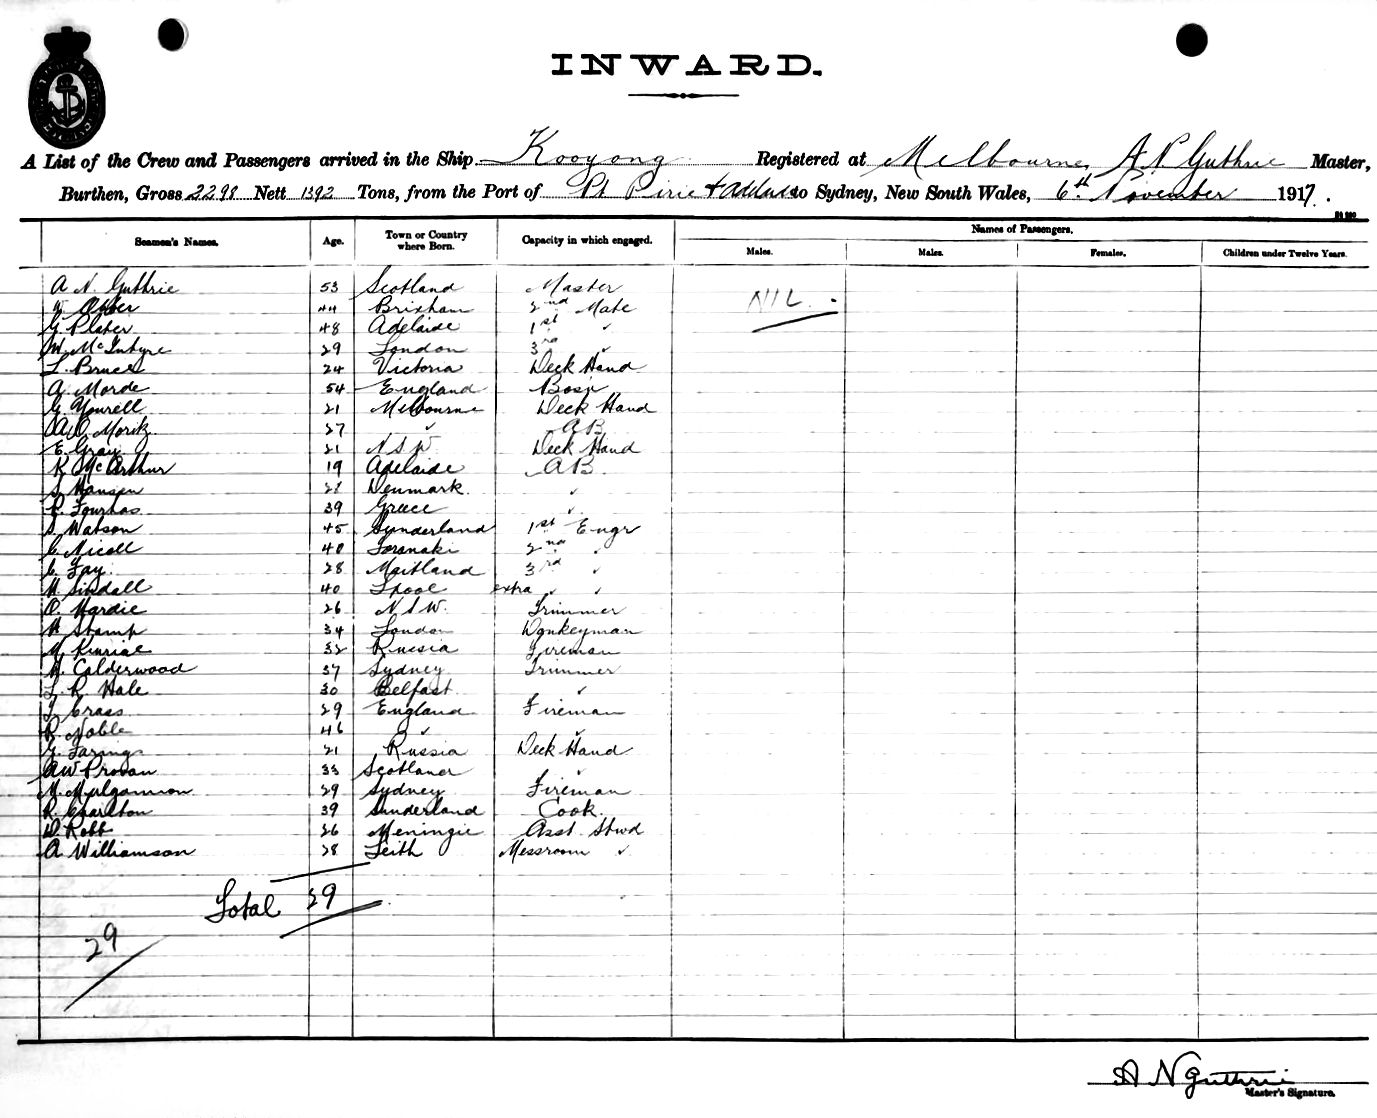 INWARD.
A List of the Crew and Passengers arrived in the Ship Kooyong Registered at Melbourne, A. N. Guthrie Master,
Burthen, Gross 2298 Nett 1392 Tons, from the Port of Pt Pirie + Adelaide to Sydney, New South Wales, 6th November 1917.
Seamen's Names. Age. Town or Country where Born. Capacity in which engaged. Names of Passengers.
Males. Males. Females. Children under Twelve Years.
A N. Guthrie 53 Scotland Master NIL.
44 Brixham 2nd Mate
G. Plater 48 Adelaide 1st ✓
W. McIntyre 29 London 3rd ✓
L. Bruce 24 Victoria Deck Hand
A. Morde 54 England Bosn
G. Yourell 21 Melbourne Deck Hand
27 ✓ AB
E. Gray 21 NSW Deck Hand
K McArthur 19 Adelaide AB
S. Hansen 28 Denmark ✓
39 Greece ✓
S Watson 45 Sunderland 1st Engr
C. Nicoll 40 Taranaki 2nd ✓
C. Fay 28 Maitland 3rd ✓
40 Lpool extra ✓ ✓
O. Hardie 26 NSW. Trimmer
H Stamp 34 London Donkeyman
32 Russia Fireman
Calderwood 37 Sydney Trimmer
L. R. Hale 30 Belfast ✓
Crass 29 England Fireman
R. Noble 46 ✓ ✓
21 Russia Deck Hand
AW Provan 33 Scotland ✓
29 Sydney Fireman
R. Charlton 39 Sunderland Cook.
D. Robb 26 Meningie Asst Stwd
A Williamson 28 Leith Messroom ✓
Total 29
29
A N Guthrie
Master's Signature.